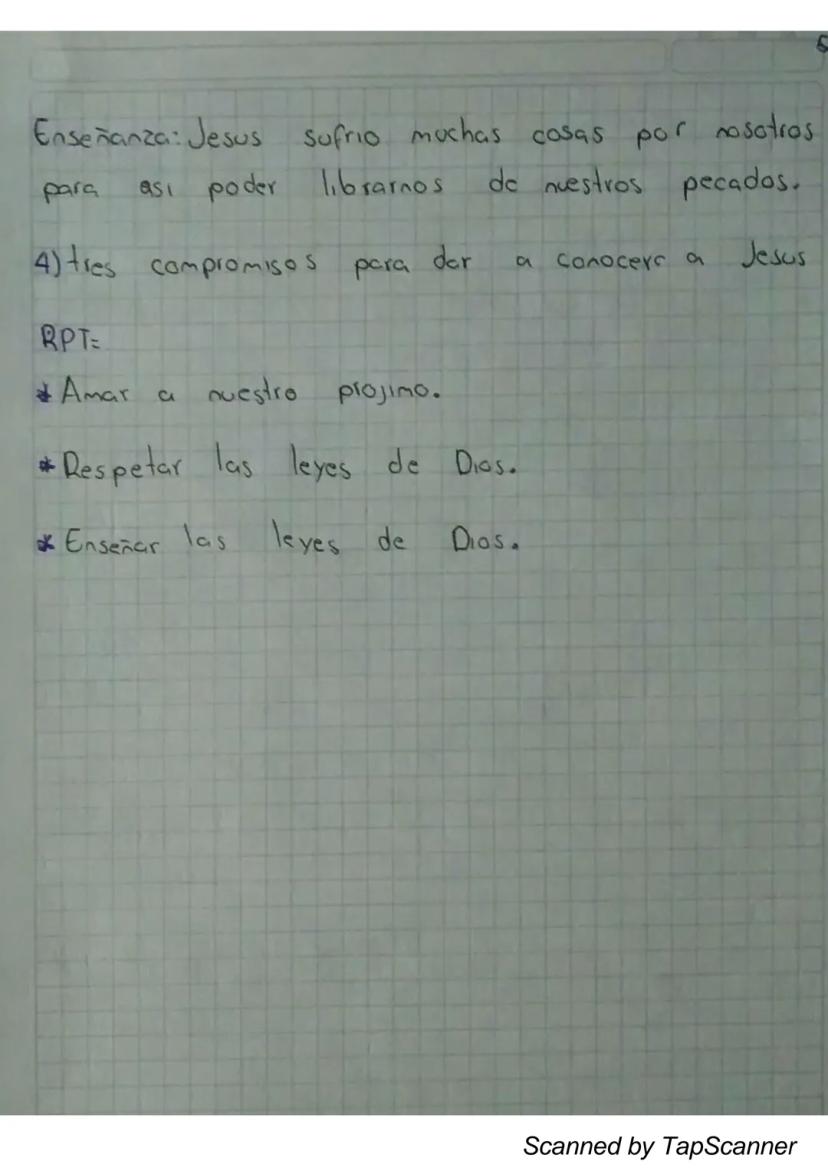 Enseñanza: Jesus sufrio muchas cosas por nosotros
para asi poder librarnos de nuestros pecados.
4) tres compromisos para dar a conocerc a Jesus
RPT=
* Amar a nuestro projimo.
* Respetar las leyes de Dios.
* Enseñar las leyes de Dios.
Scanned by TapScanner